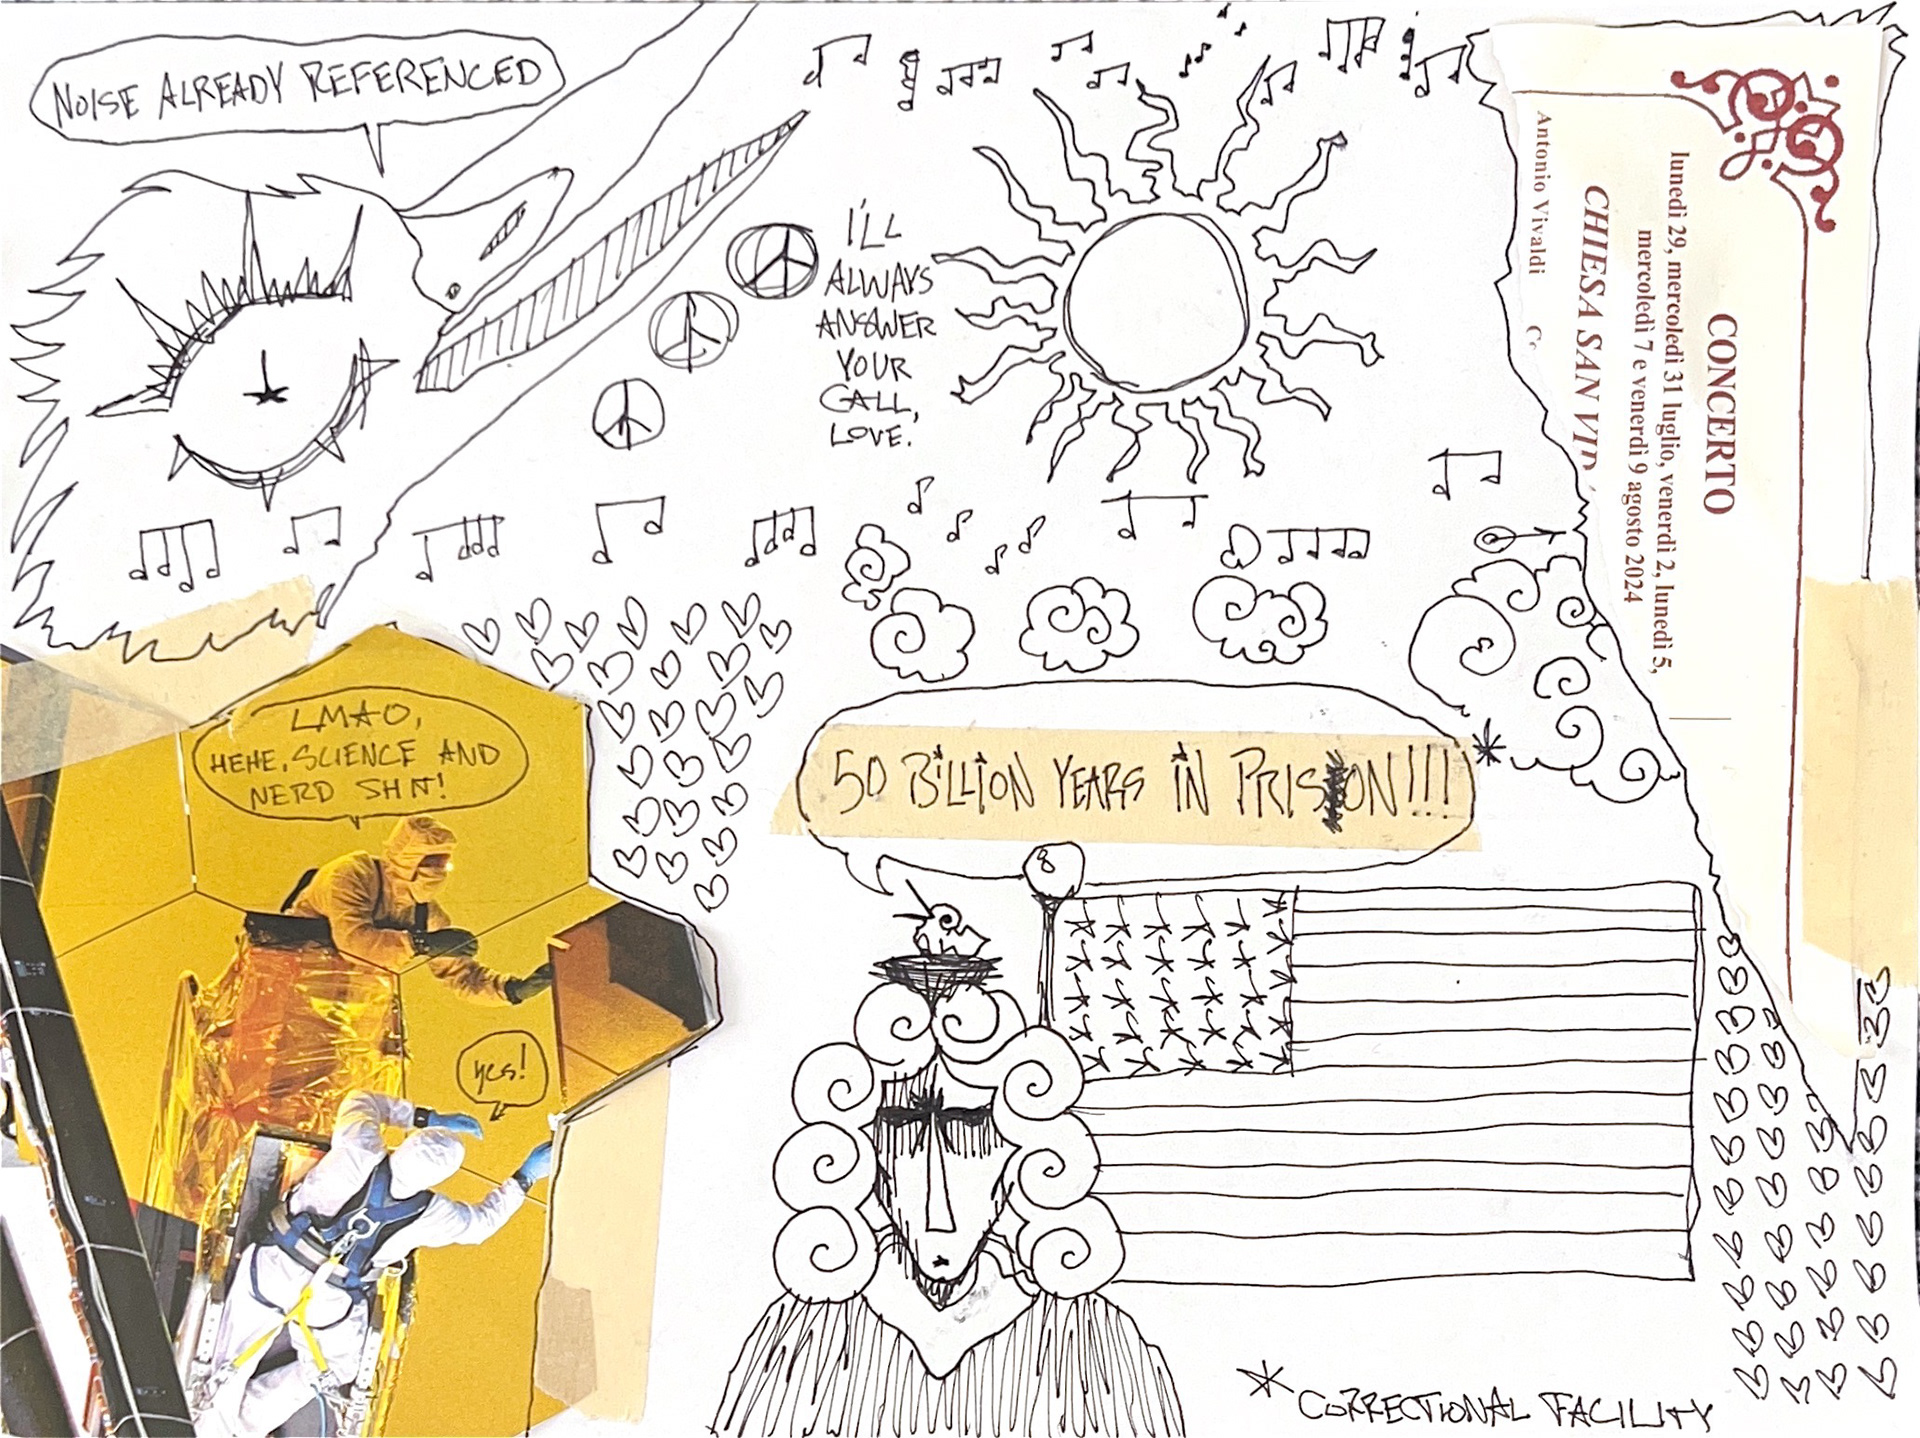 NOISE ALREADY REFERENCED
I'LL
ALWAYS
ANSWER
YOUR
CALL,
LOVE.
CONCERTO
lunedì 29, mercoledì 31 luglio, venerdì 2, lunedì 5,
mercoledì 7 e venerdì 9 agosto 2024
CHIESA SAN VID
Antonio Vivaldi
LMAO,
HEHE, SCIENCE AND
NERD SHIT!
yes!
50 BILLION YEARS IN PRISON!!! *
8
* CORRECTIONAL FACILITY